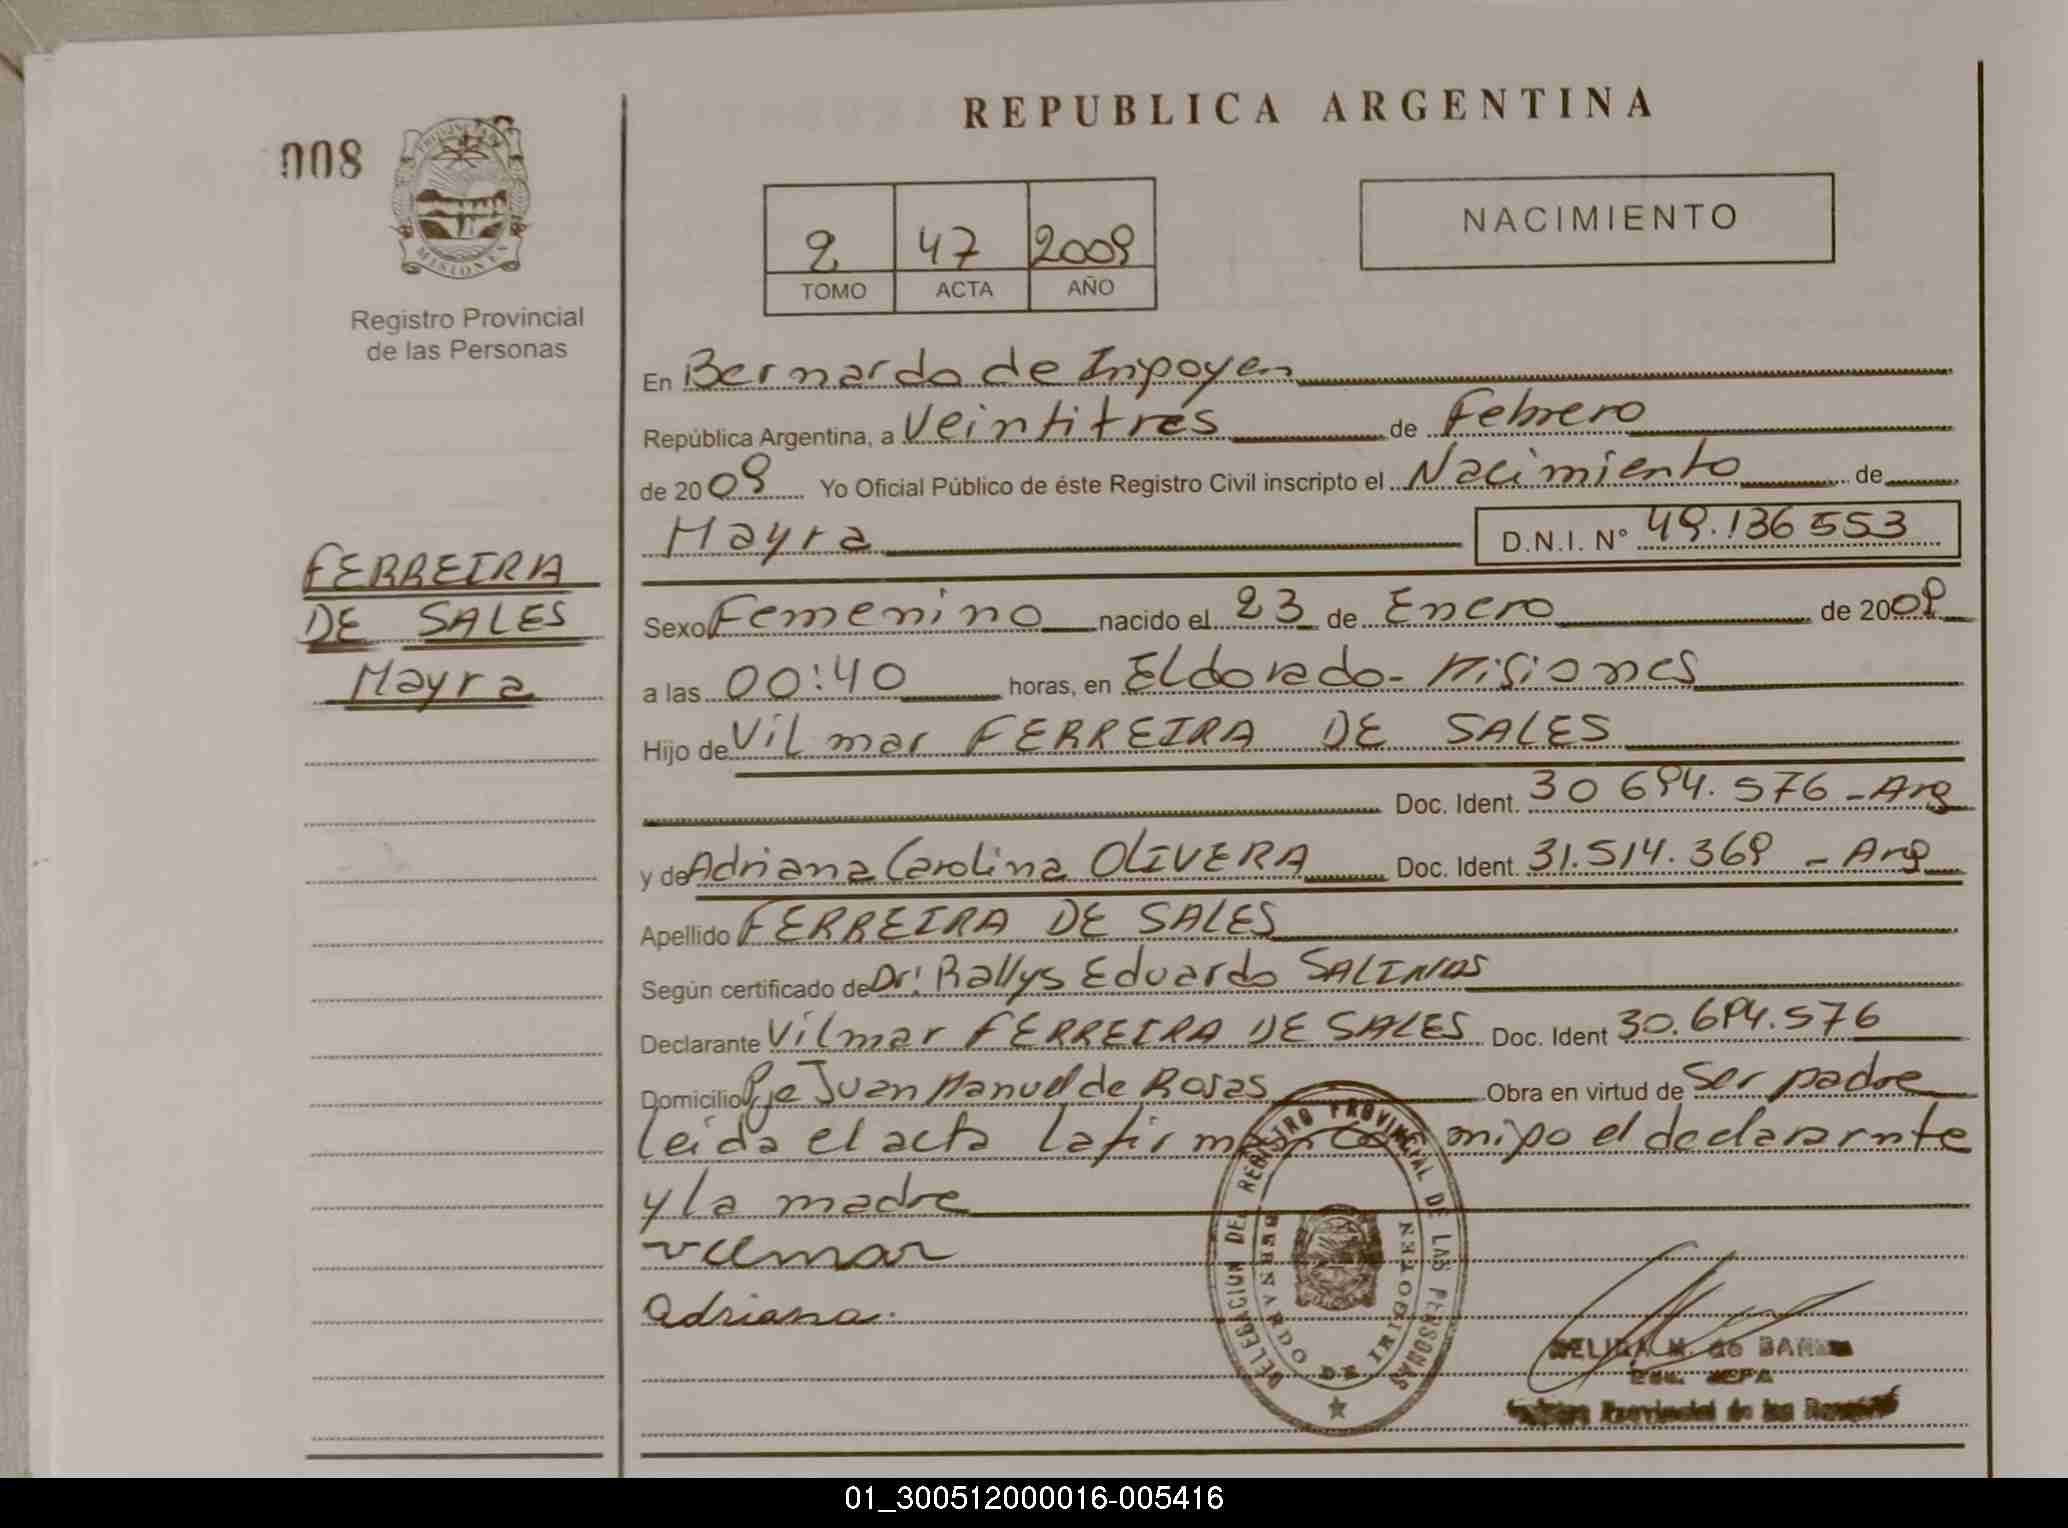 REPUBLICA ARGENTINA
008
PROVINCIA DE MISIONES
Registro Provincial
de las Personas
2 47 2009
TOMO ACTA AÑO
NACIMIENTO
En Bernardo de Irigoyen
República Argentina, a Veintitres de Febrero
de 2009 Yo Oficial Público de éste Registro Civil inscripto el Nacimiento de
Mayra D.N.I. N° 49.136 553
FERREIRA
DE SALES
Mayra
Sexo Femenino nacido el 23 de Enero de 2009
a las 00:40 horas, en Eldorado - Misiones
Hijo de Vilmar FERREIRA DE SALES
Doc. Ident. 30 694.576 - Arg
y de Adriana Carolina OLIVERA Doc. Ident. 31.514.369 - Arg
Apellido FERREIRA DE SALES
Según certificado de Dr: Rallys Eduardo SALINAS
Declarante Vilmar FERREIRA DE SALES Doc. Ident 30.694.576
Domicilio Pje Juan Manuel de Rosas Obra en virtud de Ser padre
leida el acta la firman con migo el declararnte
y la madre
Vilmar
adriana.
DELEGACION DEL REGISTRO PROVINCIAL DE LAS PERSONAS
BERNARDO DE IRIGOYEN
Provincial de las
01_300512000016-005416